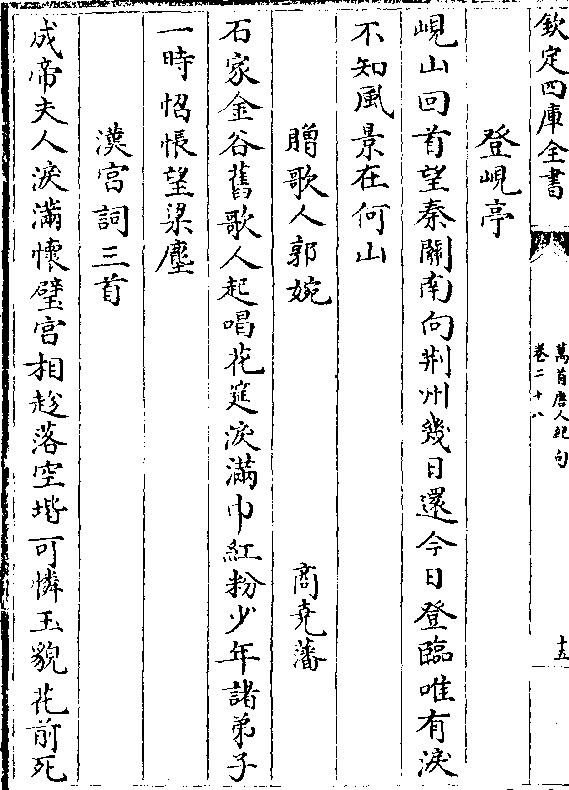 欽定四庫全書
萬首唐人絕句
卷二十八
十五
登峴亭
峴山回首望秦關南向荆州幾日還今日登臨唯有淚
不知風景在何山
贈歌人郭婉
商堯藩
石家金谷舊歌人起唱花筵淚滿巾紅粉少年諸弟子
一時惆悵望梁塵
漢宮詞三首
成帝夫人淚滿懷璧宮相趁落空堦可憐玉貌花前死